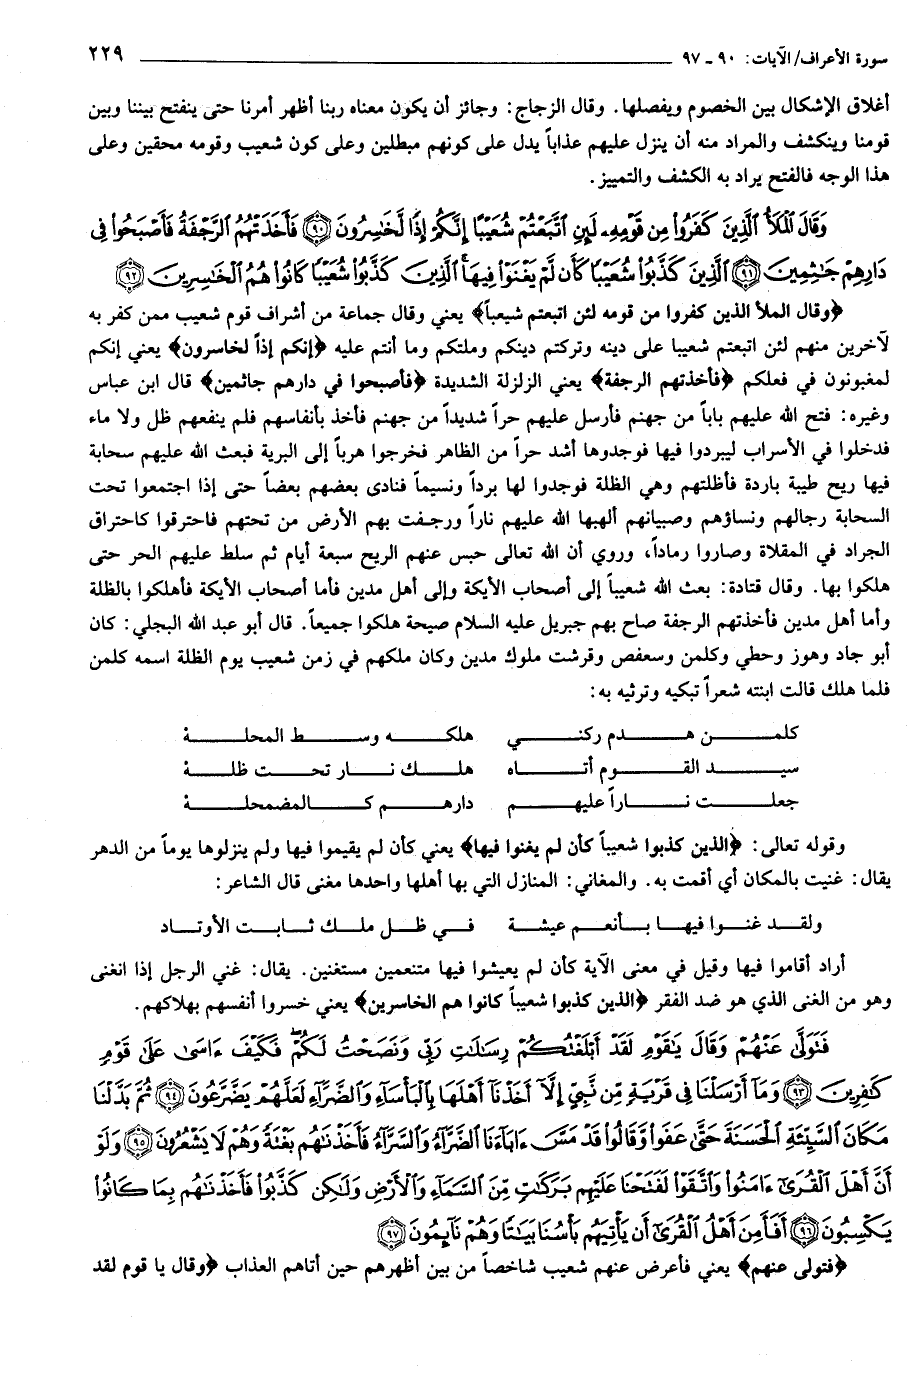 سورة الأعراف/ الآيات: ٩٠ ـ ٩٧ ٢٢٩
أغلاق الإشكال بين الخصوم ويفصلها. وقال الزجاج: وجائز أن يكون معناه ربنا أظهر أمرنا حتى ينفتح بيننا وبين
قومنا وينكشف والمراد منه أن ينزل عليهم عذاباً يدل على كونهم مبطلين وعلى كون شعيب وقومه محقين وعلى
هذا الوجه فالفتح يراد به الكشف والتمييز.
وَقَالَ ٱلْمَلَأُ ٱلَّذِينَ كَفَرُوا۟ مِن قَوْمِهِۦ لَئِنِ ٱتَّبَعْتُمْ شُعَيْبًا إِنَّكُمْ إِذًا لَّخَـٰسِرُونَ ﴿٩٠﴾ فَأَخَذَتْهُمُ ٱلرَّجْفَةُ فَأَصْبَحُوا۟ فِى
دَارِهِمْ جَـٰثِمِينَ ﴿٩١﴾ ٱلَّذِينَ كَذَّبُوا۟ شُعَيْبًا كَأَن لَّمْ يَغْنَوْا۟ فِيهَا ۚ ٱلَّذِينَ كَذَّبُوا۟ شُعَيْبًا كَانُوا۟ هُمُ ٱلْخَـٰسِرِينَ ﴿٩٢﴾
﴿وقال الملأ الذين كفروا من قومه لئن اتبعتم شيعباً﴾ يعني وقال جماعة من أشراف قوم شعيب ممن كفر به
لآخرين منهم لئن اتبعتم شعيبا على دينه وتركتم دينكم وملتكم وما أنتم عليه ﴿إنكم إذاً لخاسرون﴾ يعني إنكم
لمغبونون في فعلكم ﴿فأخذتهم الرجفة﴾ يعني الزلزلة الشديدة ﴿فأصبحوا في دارهم جاثمين﴾ قال ابن عباس
وغيره: فتح الله عليهم باباً من جهنم فأرسل عليهم حراً شديداً من جهنم فأخذ بأنفاسهم فلم ينفعهم ظل ولا ماء
فدخلوا في الأسراب ليبردوا فيها فوجدوها أشد حراً من الظاهر فخرجوا هرباً إلى البرية فبعث الله عليهم سحابة
فيها ريح طيبة باردة فأظلتهم وهي الظلة فوجدوا لها برداً ونسيماً فنادى بعضهم بعضاً حتى إذا اجتمعوا تحت
السحابة رجالهم ونساؤهم وصبيانهم ألهبها الله عليهم ناراً ورجفت بهم الأرض من تحتهم فاحترقوا كاحتراق
الجراد في المقلاة وصاروا رماداً، وروي أن الله تعالى حبس عنهم الريح سبعة أيام ثم سلط عليهم الحر حتى
هلكوا بها. وقال قتادة: بعث الله شعيباً إلى أصحاب الأيكة وإلى أهل مدين فأما أصحاب الأيكة فأهلكوا بالظلة
وأما أهل مدين فأخذتهم الرجفة صاح بهم جبريل عليه السلام صيحة هلكوا جميعاً. قال أبو عبد الله البجلي: كان
أبو جاد وهوز وحطي وكلمن وسعفص وقرشت ملوك مدين وكان ملكهم في زمن شعيب يوم الظلة اسمه كلمن
فلما هلك قالت ابنته شعراً تبكيه وترثيه به:
كلمن هدم ركني هلكه وسط المحلة
سيد القوم أتاه هلك نار تحت ظلة
جعلت ناراً عليهم دارهم كالمضمحلة
وقوله تعالى: ﴿الذين كذبوا شعيباً كأن لم يغنوا فيها﴾ يعني كأن لم يقيموا فيها ولم ينزلوها يوماً من الدهر
يقال: غنيت بالمكان أي أقمت به. والمغاني: المنازل التي بها أهلها واحدها مغنى قال الشاعر:
ولقد غنوا فيها بأنعم عيشة في ظل ملك ثابت الأوتاد
أراد أقاموا فيها وقيل في معنى الآية كأن لم يعيشوا فيها متنعمين مستغنين. يقال: غني الرجل إذا انغنى
وهو من الغنى الذي هو ضد الفقر ﴿الذين كذبوا شعيباً كانوا هم الخاسرين﴾ يعني خسروا أنفسهم بهلاكهم.
فَتَوَلَّىٰ عَنْهُمْ وَقَالَ يَـٰقَوْمِ لَقَدْ أَبْلَغْتُكُمْ رِسَـٰلَـٰتِ رَبِّى وَنَصَحْتُ لَكُمْ ۖ فَكَيْفَ ءَاسَىٰ عَلَىٰ قَوْمٍ
كَـٰفِرِينَ ﴿٩٣﴾ وَمَآ أَرْسَلْنَا فِى قَرْيَةٍ مِّن نَّبِىٍّ إِلَّآ أَخَذْنَآ أَهْلَهَا بِٱلْبَأْسَآءِ وَٱلضَّرَّآءِ لَعَلَّهُمْ يَضَّرَّعُونَ ﴿٩٤﴾ ثُمَّ بَدَّلْنَا
مَكَانَ ٱلسَّيِّئَةِ ٱلْحَسَنَةَ حَتَّىٰ عَفَوا۟ وَّقَالُوا۟ قَدْ مَسَّ ءَابَآءَنَا ٱلضَّرَّآءُ وَٱلسَّرَّآءُ فَأَخَذْنَـٰهُم بَغْتَةً وَهُمْ لَا يَشْعُرُونَ ﴿٩٥﴾ وَلَوْ
أَنَّ أَهْلَ ٱلْقُرَىٰٓ ءَامَنُوا۟ وَٱتَّقَوْا۟ لَفَتَحْنَا عَلَيْهِم بَرَكَـٰتٍ مِّنَ ٱلسَّمَآءِ وَٱلْأَرْضِ وَلَـٰكِن كَذَّبُوا۟ فَأَخَذْنَـٰهُم بِمَا كَانُوا۟
يَكْسِبُونَ ﴿٩٦﴾ أَفَأَمِنَ أَهْلُ ٱلْقُرَىٰٓ أَن يَأْتِيَهُم بَأْسُنَا بَيَـٰتًا وَهُمْ نَآئِمُونَ ﴿٩٧﴾
﴿فتولى عنهم﴾ يعني فأعرض عنهم شعيب شاخصاً من بين أظهرهم حين أتاهم العذاب ﴿وقال يا قوم لقد